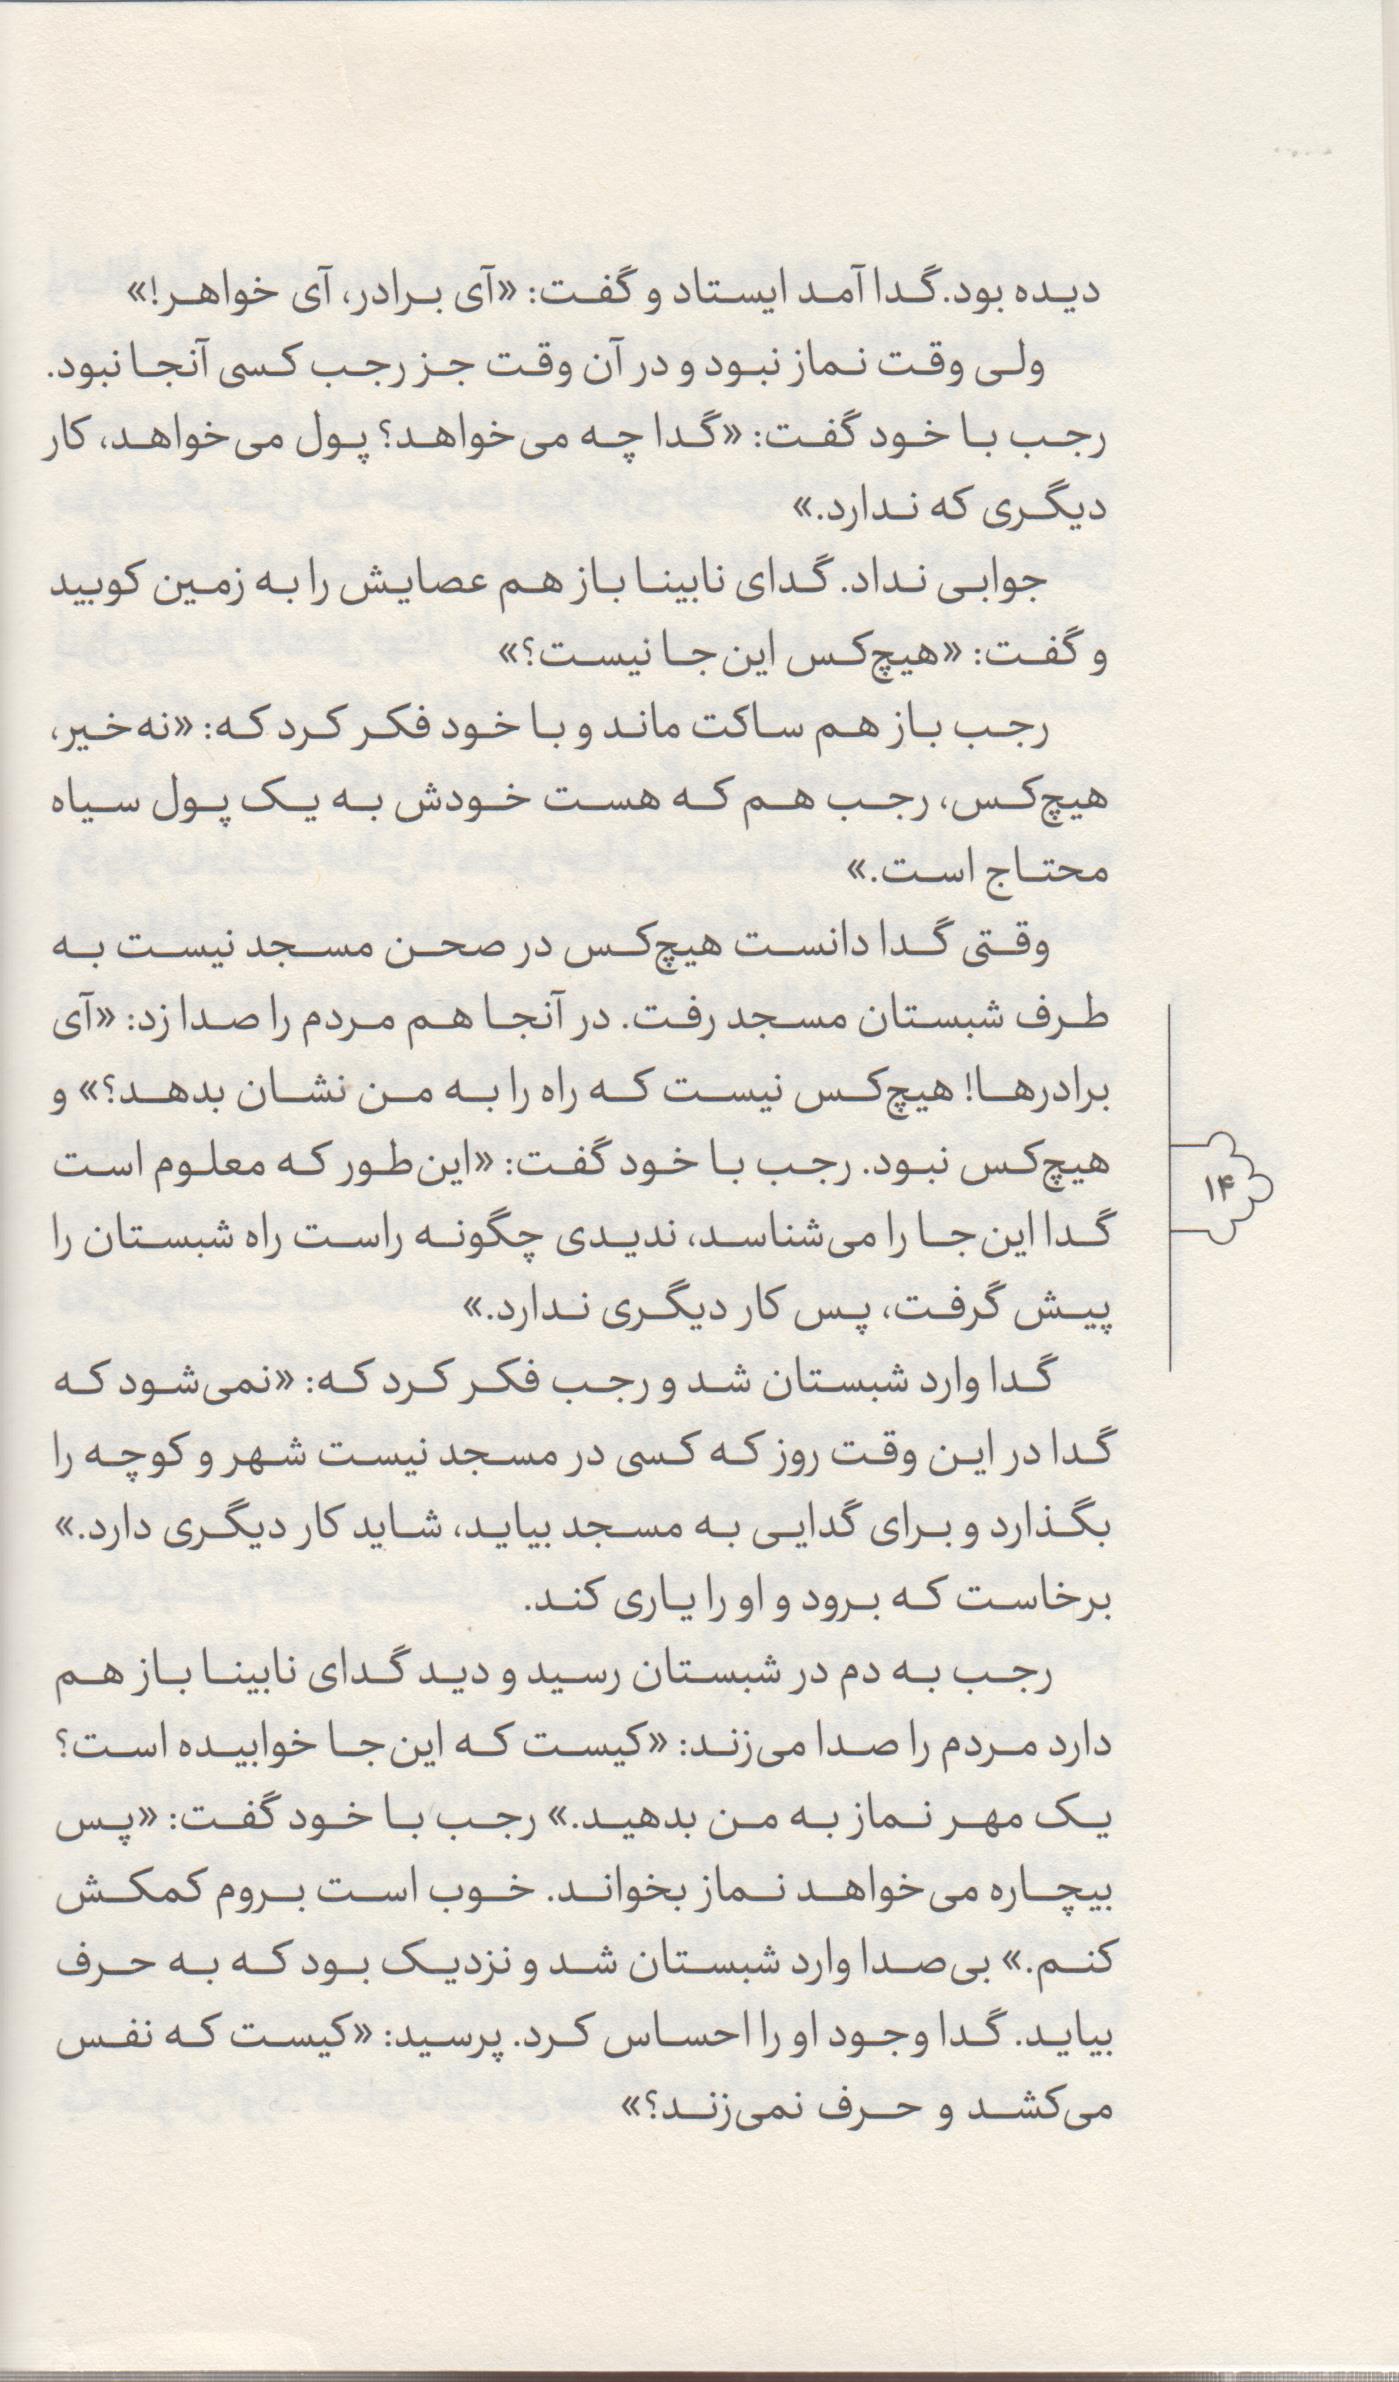 دیده بود. گدا آمد ایستاد و گفت: «آی برادر، آی خواهر!»
ولی وقت نماز نبود و در آن وقت جز رجب کسی آنجا نبود.
رجب با خود گفت: «گدا چه می‌خواهد؟ پول می‌خواهد، کار
دیگری که ندارد.»
جوابی نداد. گدای نابینا باز هم عصایش را به زمین کوبید
و گفت: «هیچ‌کس این‌جا نیست؟»
رجب باز هم ساکت ماند و با خود فکر کرد که: «نه‌خیر،
هیچ‌کس، رجب هم که هست خودش به یک پول سیاه
محتاج است.»
وقتی گدا دانست هیچ‌کس در صحن مسجد نیست به
طرف شبستان مسجد رفت. در آنجا هم مردم را صدا زد: «آی
برادرها! هیچ‌کس نیست که راه را به من نشان بدهد؟» و
هیچ‌کس نبود. رجب با خود گفت: «این‌طور که معلوم است
گدا این‌جا را می‌شناسد، ندیدی چگونه راست راه شبستان را
پیش گرفت، پس کار دیگری ندارد.»
گدا وارد شبستان شد و رجب فکر کرد که: «نمی‌شود که
گدا در این وقت روز که کسی در مسجد نیست شهر و کوچه را
بگذارد و برای گدایی به مسجد بیاید، شاید کار دیگری دارد.»
برخاست که برود و او را یاری کند.
رجب به دم در شبستان رسید و دید گدای نابینا باز هم
دارد مردم را صدا می‌زند: «کیست که این‌جا خوابیده است؟
یک مهر نماز به من بدهید.» رجب با خود گفت: «پس
بیچاره می‌خواهد نماز بخواند. خوب است بروم کمکش
کنم.» بی‌صدا وارد شبستان شد و نزدیک بود که به حرف
بیاید. گدا وجود او را احساس کرد. پرسید: «کیست که نفس
می‌کشد و حرف نمی‌زند؟»
۱۴